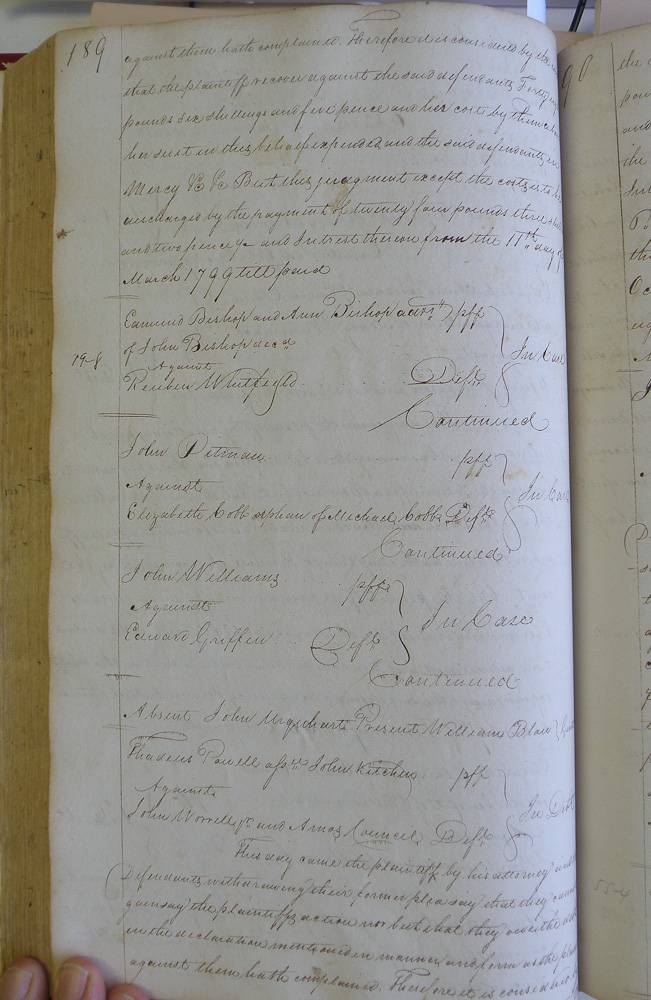 189
against them hath complained. Therefore it is considered by the
that the plaintiff recover against the said defendants Forty
pounds six shillings and five pence and her costs by them
her suit in this behalf expended and the said defendants in
Mercy &c &c But this judgment except the costs is to be
discharged by the payment of twenty four pounds three
and two pence and Intrest thereon from the 11th day of
March 1799 till paid
Edmund Bishop and Ann Bishop admrs pff
of John Bishop decd
In Case
Against
Reuben Whitfield Deft
Continued
John Pitman pff
Against
In Case
Elizabeth Cobb orphan of Michael Cobb Deft
Continued
John Williams pff
Against
In Case
Edward Griffin Deft
Continued
Absent John Urquhart Present William Blow
Thadeus Powell assee John Kitchen pff
Against
In Debt
John Worrell jr and Amos Council Deft
This day came the plaintiff by his attorney and the
Defendants withdrawing their former plea say that they cannot
gainsay the plaintiffs action nor but that they owe the debt
in the declaration mentioned in manner and form as the
against them hath complained. Therefore it is considered
90